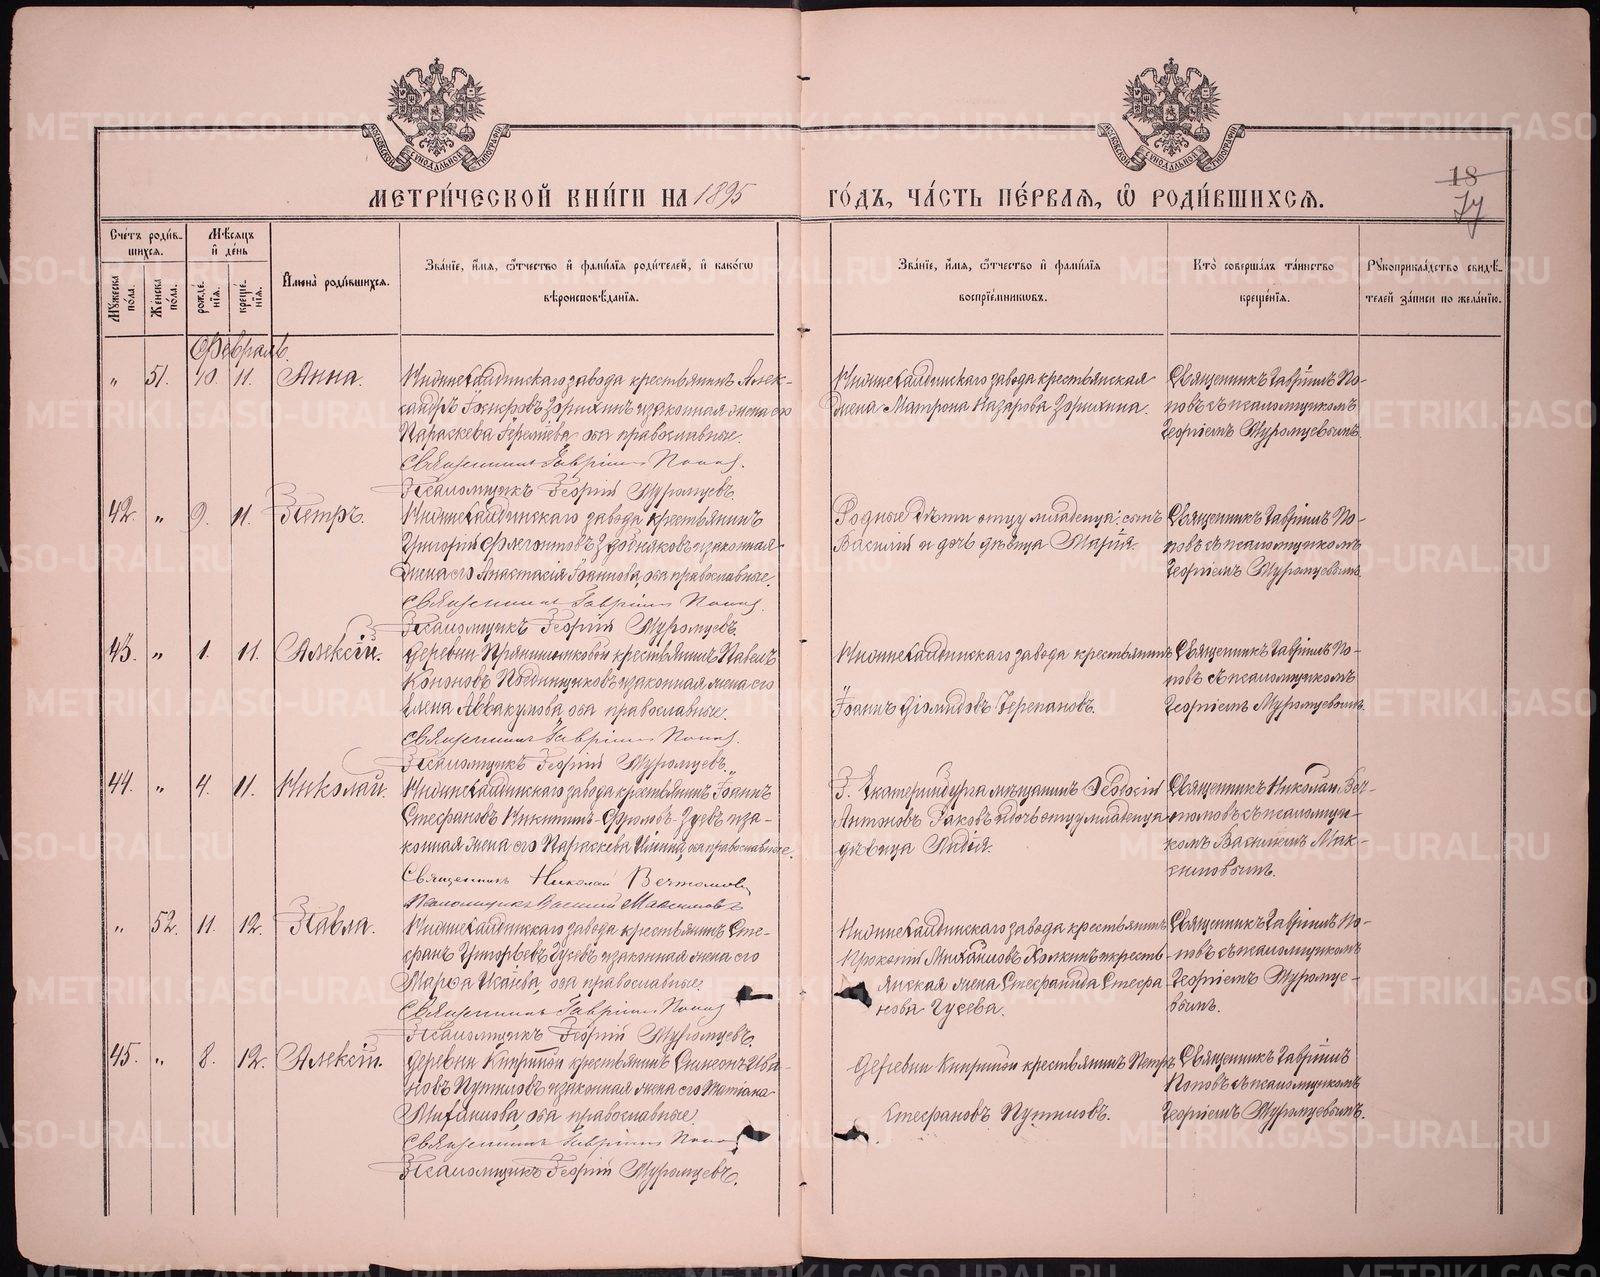 МЕТРИ́ЧЕСКОЙ КНИ́ГИ НА 1895 ГО́ДЪ, ЧА́СТЬ ПЕ́РВАЯ, Ѽ РОДИ́ВШИХСЯ.
18
Сче́тъ роди́в-
шихся.
Мѣсяцъ
и҆ де́нь
Мꙋжеска по́ла.
Же́нска по́ла.
рожде́нїѧ.
креще́нїѧ.
И҆мена̀ роди́вшихся.
Зва́нїе, и҆́мѧ, ѻ҆́тчество и҆ фами́лїѧ роди́телей, и҆ како́гѡ
вѣроисповѣ́данїѧ.
Зва́нїе, и҆́мѧ, ѻ҆́тчество и҆ фами́лїѧ
воспрїе́мникѡвъ.
Кто̀ соверша́лъ та́инство
креще́нїѧ.
Рꙋкоприкла́дство свидѣ́-
телей за́писи по жела́нїю.
Февраль.
„ 51. 10. 11. Анна.
Нижнесалдинскаго завода крестьянинъ Алек-
сандръ Зорихинъ и законная жена его
Параскева оба православные.
Священникъ Гавріилъ Поповъ.
Псаломщикъ Георгій Муромцевъ.
Нижнесалдинскаго завода крестьянская
жена Матрона Назарова Зорихина.
Священникъ Гавріилъ По-
повъ съ псаломщикомъ
Георгіемъ Муромцевымъ.
42. „ 9. 11. Петръ.
Нижнесалдинскаго завода крестьянинъ
Григорій Флегонтовъ и законная
жена его Анастасія Іоаннова, оба православные.
Священникъ Гавріилъ Поповъ.
Псаломщикъ Георгій Муромцевъ.
Родные дѣти отцу младенца: сынъ
Василій и дочь дѣвица Марія.
Священникъ Гавріилъ По-
повъ съ псаломщикомъ
Георгіемъ Муромцевымъ.
43. „ 1. 11. Алексій.
Деревни Прянишниковой крестьянинъ Павелъ
Кононовъ и законная жена его
Елена Аввакумова, оба православные.
Священникъ Гавріилъ Поповъ.
Псаломщикъ Георгій Муромцевъ.
Нижнесалдинскаго завода крестьянинъ
Іоаннъ Діомидовъ Черепановъ.
Священникъ Гавріилъ По-
повъ съ псаломщикомъ
Георгіемъ Муромцевымъ.
44. „ 4. 11. Николай.
Нижнесалдинскаго завода крестьянинъ Іоаннъ
Стефановъ Никитинъ-Зуевъ и за-
конная жена его Параскева Ильина, оба православные.
Священникъ Николай Вечтомовъ
Псаломщикъ Василій Максимовъ
Г. Екатеринбурга мѣщанинъ Ѳеодосій
Антоновъ и дочь отцу младенца
дѣвица Лидія.
Священникъ Николай Веч-
томовъ съ псаломщи-
комъ Василіемъ Мак-
симовымъ.
„ 52. 11. 12. Павла.
Нижнесалдинскаго завода крестьянинъ Сте-
фанъ Григорьевъ Гусевъ и законная жена его
Марѳа Исаева, оба православные.
Священникъ Гавріилъ Поповъ
Псаломщикъ Георгій Муромцевъ.
Нижнесалдинскаго завода крестьянинъ
Прокопій Михаиловъ Холкинъ и кресть-
янская жена Стефанида Стефа
нова Гусева.
Священникъ Гавріилъ По-
повъ съ псаломщикомъ
Георгіемъ Муромце-
вымъ.
45. „ 8. 12. Алексій.
Деревни крестьянинъ Симеонъ Ива-
новъ Путиловъ и законная жена его Татіана
Михаилова, оба православные.
Священникъ Гавріилъ Поповъ
Псаломщикъ Георгій Муромцевъ.
Деревни крестьянинъ Петръ
Стефановъ Путиловъ.
Священникъ Гавріилъ
Поповъ съ псаломщикомъ
Георгіемъ Муромцевымъ.
METRIKI.GASO-URAL.RU